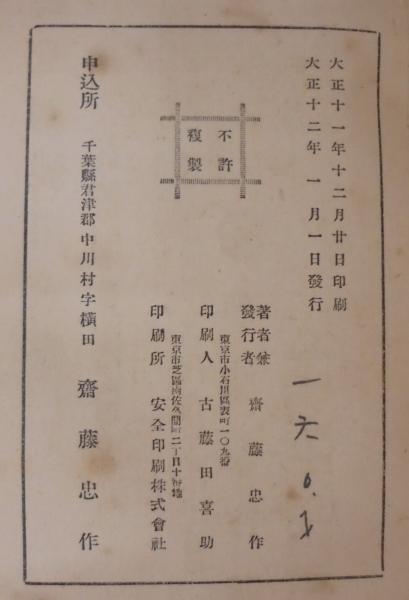 大正十一年十二月廿日印刷
大正十二年一月一日發行
不許
複製
著者兼
發行者 齋藤忠作
東京市小石川區表町一〇九番
印刷人 古藤田喜助
東京市芝區南佐久間町二丁目十番地
印刷所 安全印刷株式會社
申込所 千葉縣君津郡中川村字橫田 齋藤忠作